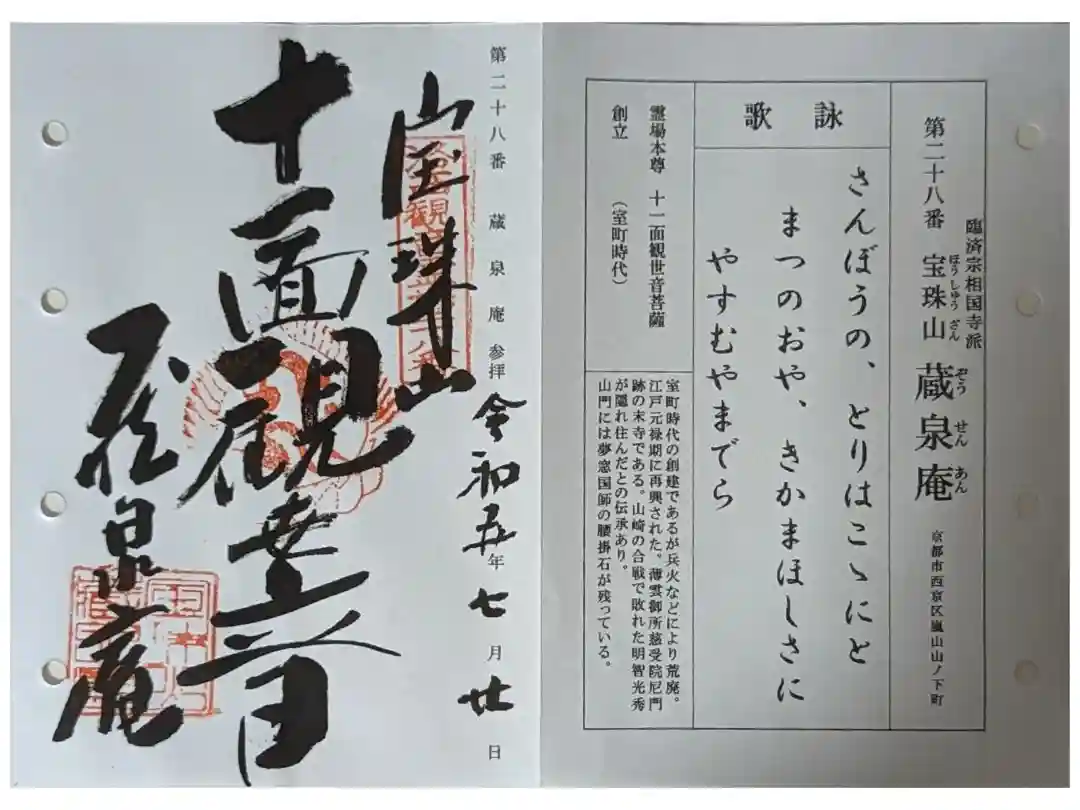 臨済宗相国寺派
第二十八番 宝珠山 蔵泉庵 京都市西京区嵐山山ノ下町
ほうしゅうざん ぞうせんあん
詠歌
さんぼうの、とりはこゝにと
まつのおや、きかまほしさに
やすむやまでら
霊場本尊 十一面観世音菩薩
創立 (室町時代)
室町時代の創建であるが兵火などにより荒廃。
江戸元禄期に再興された。薄雲御所慈受院尼門
跡の末寺である。山崎の合戦で敗れた明智光秀
が隠れ住んだとの伝承あり。
山門には夢窓国師の腰掛石が残っている。
第二十八番 蔵泉庵 参拝 令和五年七月廿日
宝珠山
十一面観世音
蔵泉庵